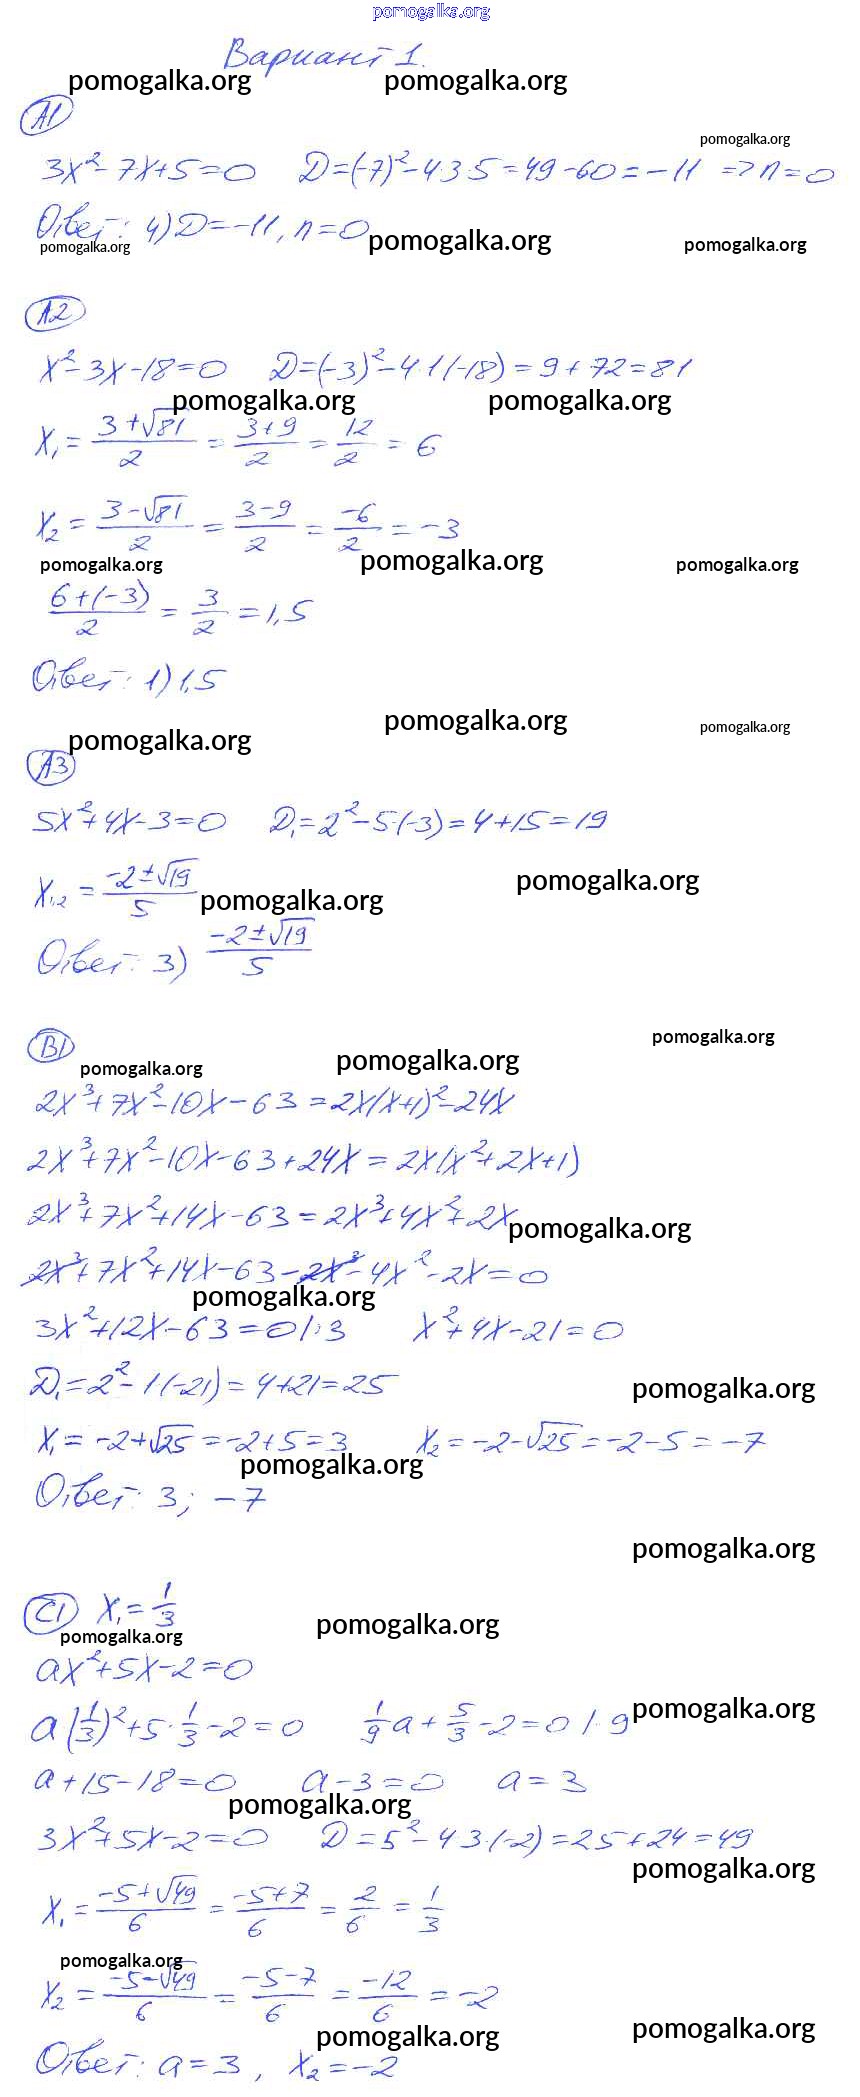 pomogalka.org
Вариант 1.
pomogalka.org pomogalka.org
А1
pomogalka.org
3x² - 7x + 5 = 0 D = (-7)² - 4·3·5 = 49 - 60 = -11 => n = 0
Ответ: 4) D = -11, n = 0
pomogalka.org pomogalka.org pomogalka.org
А2
x² - 3x - 18 = 0 D = (-3)² - 4·1·(-18) = 9 + 72 = 81
pomogalka.org pomogalka.org
x₁ = (3 + √81)/2 = (3 + 9)/2 = 12/2 = 6
x₂ = (3 - √81)/2 = (3 - 9)/2 = -6/2 = -3
pomogalka.org pomogalka.org pomogalka.org
(6 + (-3))/2 = 3/2 = 1,5
Ответ: 1) 1,5
pomogalka.org pomogalka.org pomogalka.org
А3
5x² + 4x - 3 = 0 D₁ = 2² - 5·(-3) = 4 + 15 = 19
x₁,₂ = (-2 ± √19)/5
pomogalka.org pomogalka.org
Ответ: 3) (-2 ± √19)/5
В1
pomogalka.org pomogalka.org pomogalka.org
2x³ + 7x² - 10x - 63 = 2x(x+1)² - 24x
2x³ + 7x² - 10x - 63 + 24x = 2x(x² + 2x + 1)
2x³ + 7x² + 14x - 63 = 2x³ + 4x² + 2x
pomogalka.org
2x³ + 7x² + 14x - 63 - 2x³ - 4x² - 2x = 0
pomogalka.org
3x² + 12x - 63 = 0 |:3 x² + 4x - 21 = 0
D₁ = 2² - 1·(-21) = 4 + 21 = 25
pomogalka.org
x₁ = -2 + √25 = -2 + 5 = 3 x₂ = -2 - √25 = -2 - 5 = -7
pomogalka.org
Ответ: 3; -7
pomogalka.org
С1 x₁ = 1/3
pomogalka.org pomogalka.org
ax² + 5x - 2 = 0
a(1/3)² + 5·1/3 - 2 = 0 1/9a + 5/3 - 2 = 0 |·9
pomogalka.org
a + 15 - 18 = 0 a - 3 = 0 a = 3
pomogalka.org
3x² + 5x - 2 = 0 D = 5² - 4·3·(-2) = 25 + 24 = 49
pomogalka.org
x₁ = (-5 + √49)/6 = (-5 + 7)/6 = 2/6 = 1/3
pomogalka.org
x₂ = (-5 - √49)/6 = (-5 - 7)/6 = -12/6 = -2
pomogalka.org pomogalka.org
Ответ: a = 3, x₂ = -2